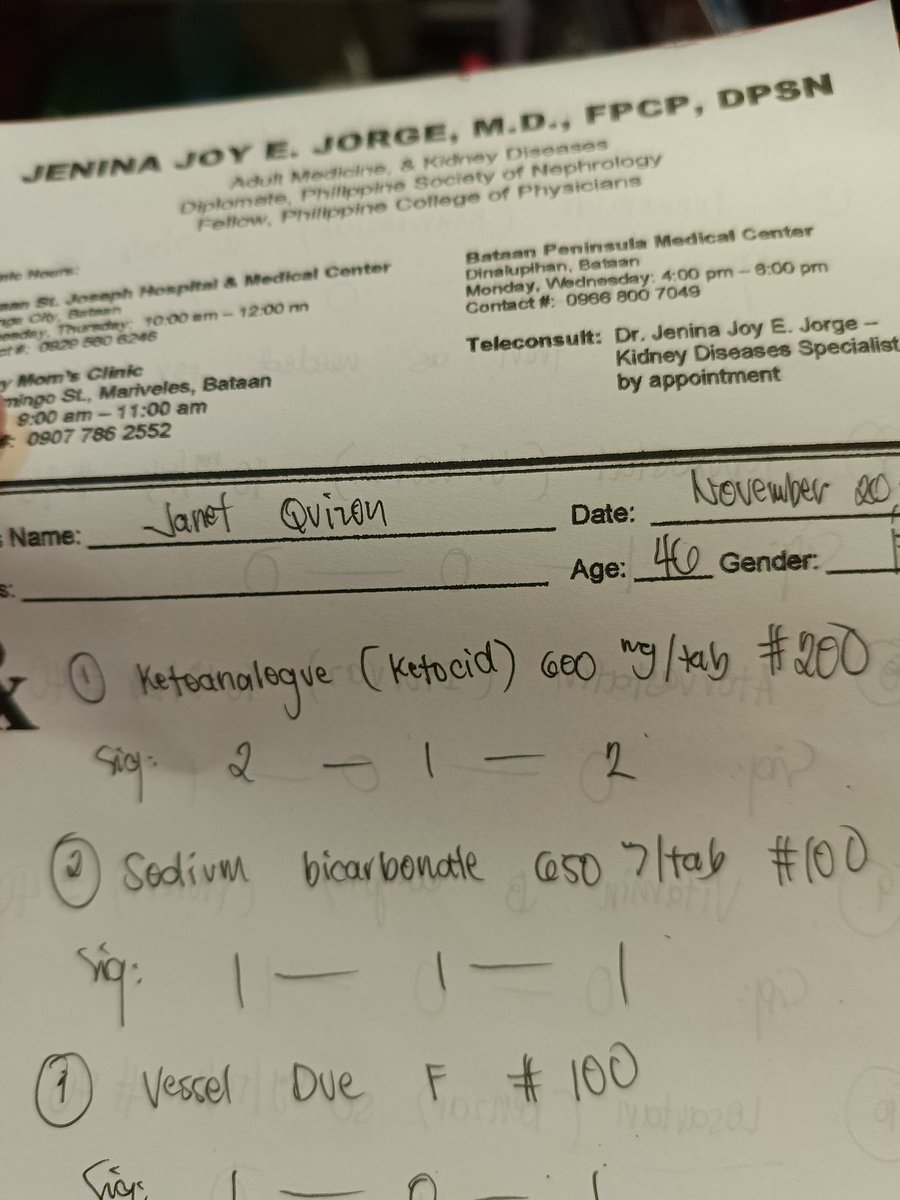 JENINA JOY E. JORGE, M.D., FPCP, DPSN
Adult Medicine, & Kidney Diseases
Diplomate, Philippine Society of Nephrology
Fellow, Philippine College of Physicians
Hours:
St. Joseph Hospital & Medical Center
City, Bataan
Thursday: 10:00 am – 12:00 nn
#: 0929 560 6246
Mom's Clinic
St., Mariveles, Bataan
9:00 am – 11:00 am
#: 0907 786 2552
Bataan Peninsula Medical Center
Dinalupihan, Bataan
Monday, Wednesday: 4:00 pm – 6:00 pm
Contact #: 0966 800 7049
Teleconsult: Dr. Jenina Joy E. Jorge –
Kidney Diseases Specialist
by appointment
Name: Janet Quizon Date: November 20,
Age: 46 Gender:
① Ketoanalogue (Ketocid) 600 mg/tab #200
Sig: 2 — 1 — 2
② Sodium bicarbonate 650 /tab #100
Sig: 1 — 1 — 1
Vessel Due F # 100
Sig: 1 — 0 — 1